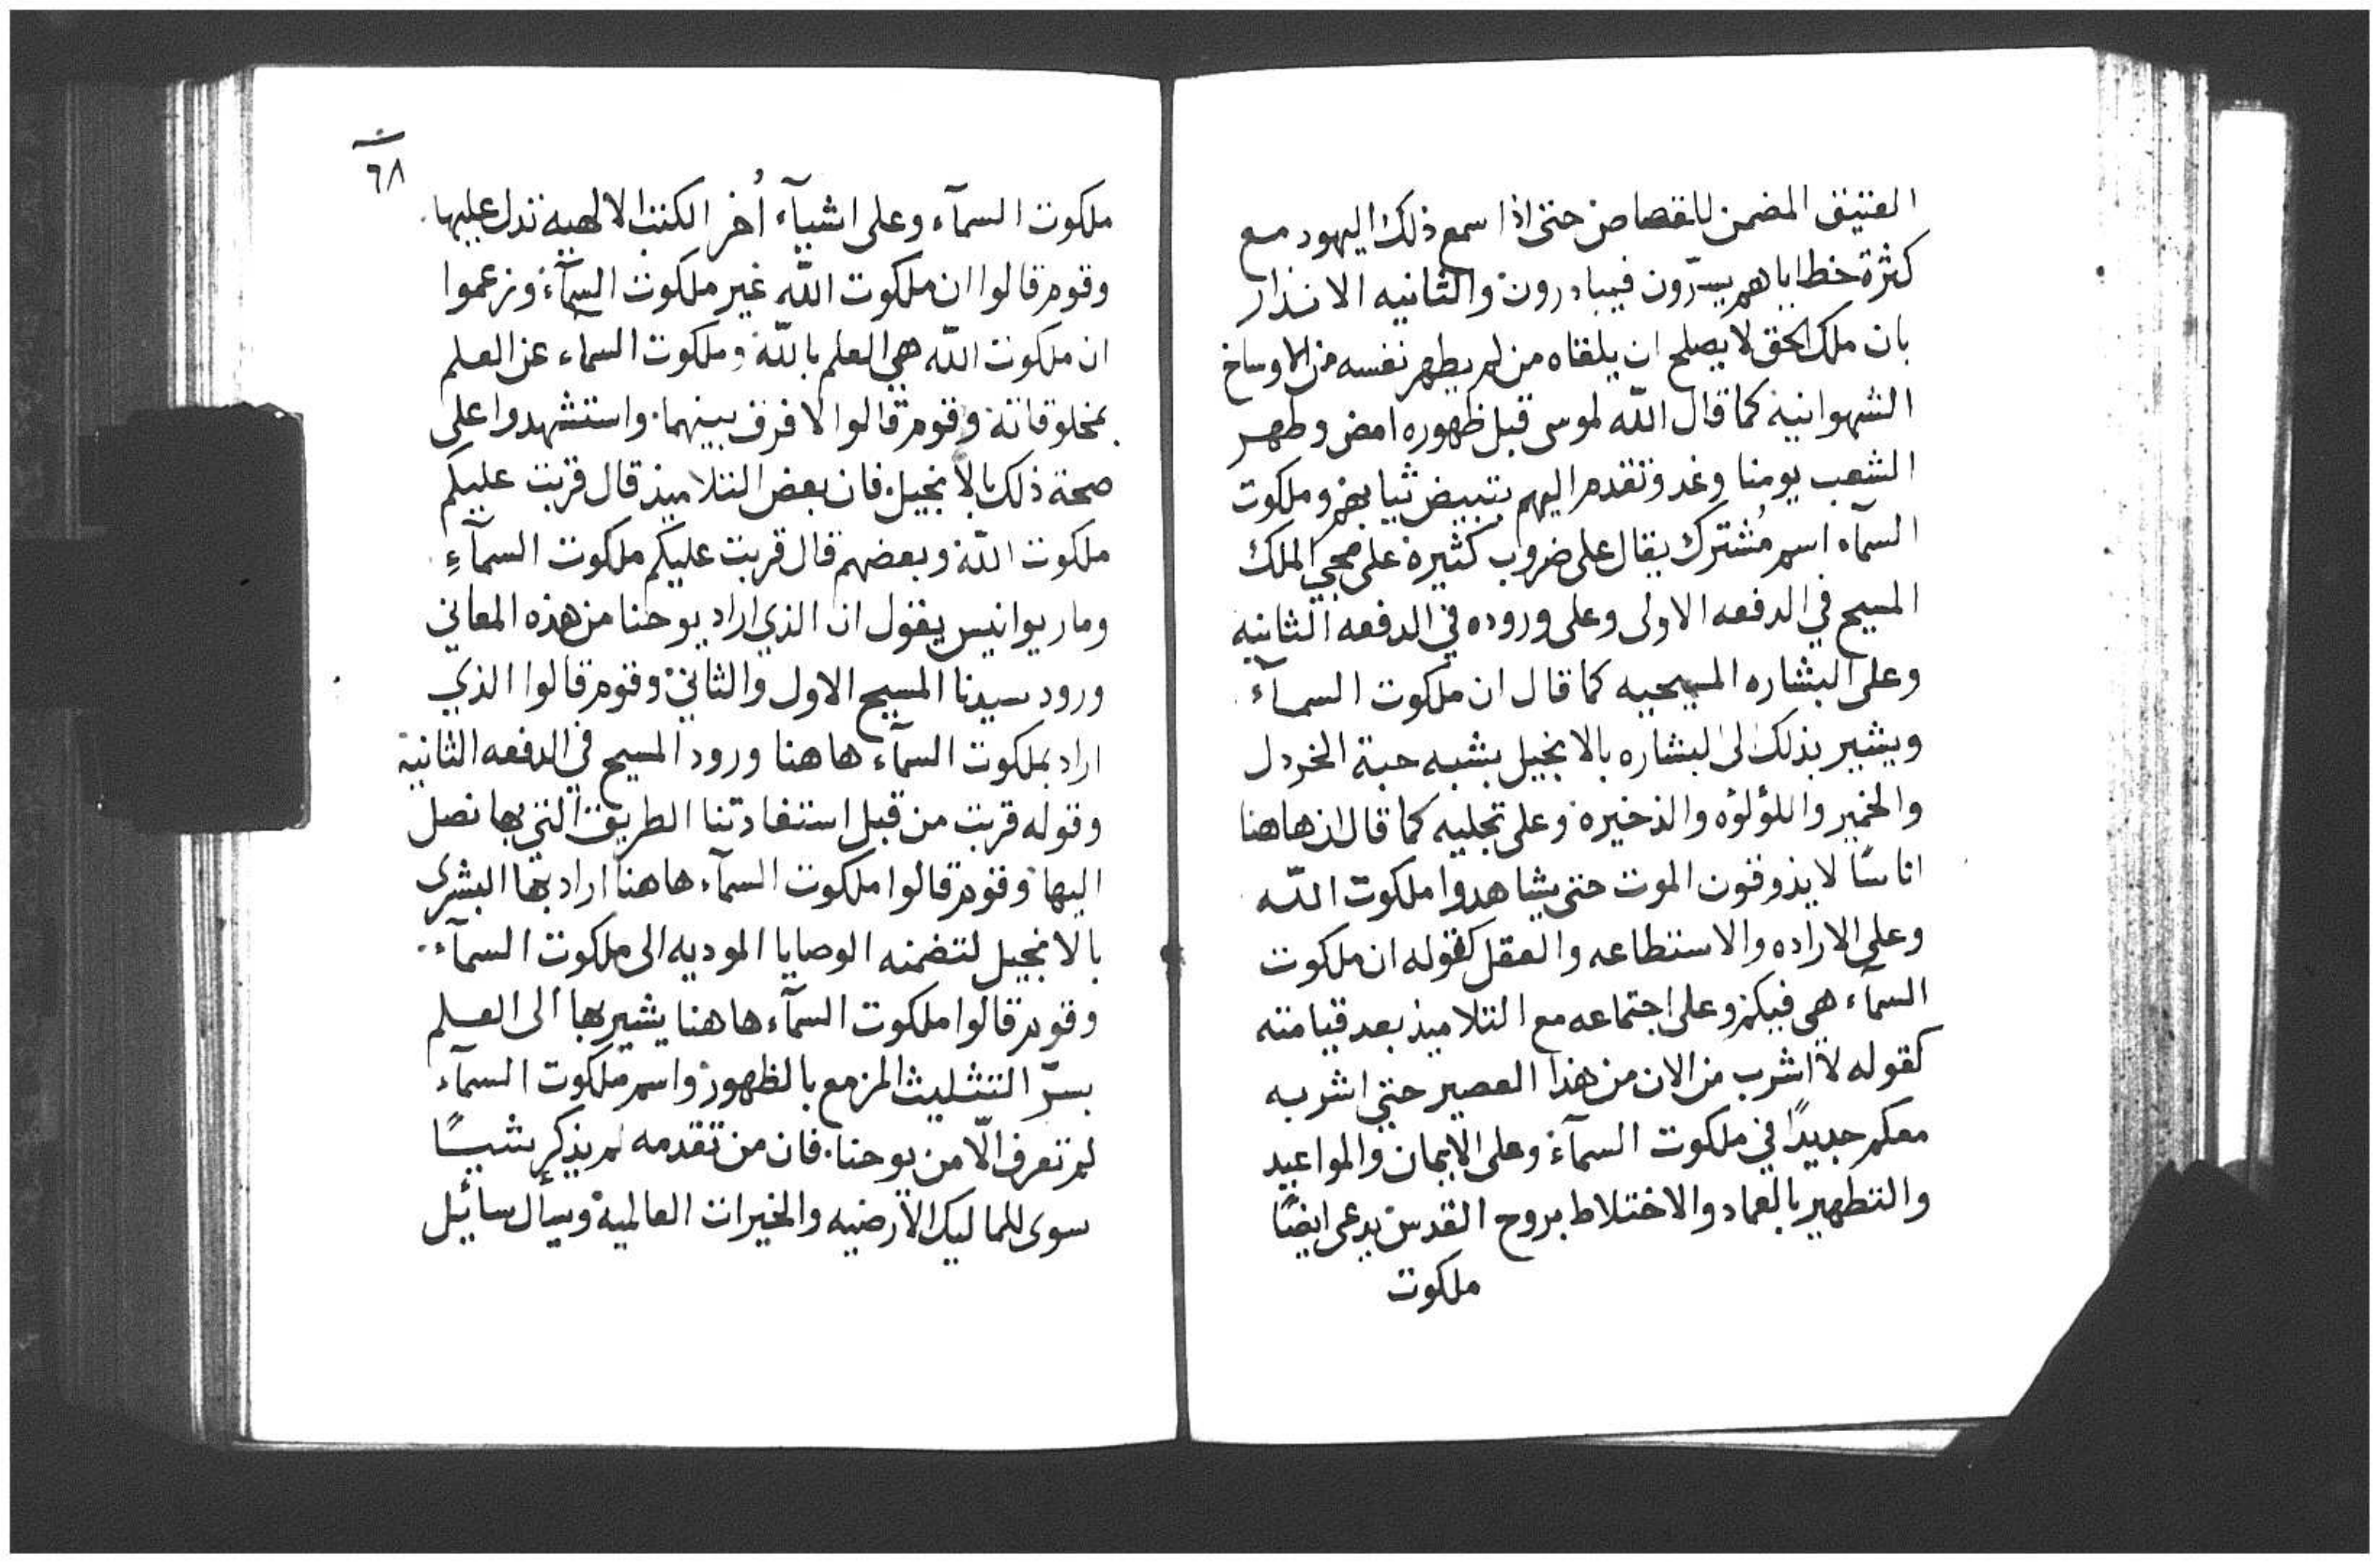 العتيق المضمن للقصاص حتى اذا سمع ذلك اليهود مع
كثرة خطاياهم يسرّون فيبادرون والثانيه الانذار
بان ملك الحق لا يصلح ان يلقاه من لم يطهر نفسه من الاوساخ
الشهوانية كما قال الله لموسى قبل ظهوره امض وطهر
الشعب يومنا وغد وتقدم اليهم بتبييض ثيابهم وملكوت
السمآء اسم مُشترك يقال على ضروب كثيرة على مجي الملك
المسيح في الدفعه الاولى وعلى وروده في الدفعه الثانيه
وعلى البشاره المسيحيه كما قال ان ملكوت السمآء
ويشير بذلك الى البشاره بالانجيل يشبه حبة الخردل
والخمير واللؤلؤه والذخيرة وعلى تجليه كما قال ان هاهنا
اناسًا لا يذوقون الموت حتى يشاهدوا ملكوت اللّه
وعلى الاراده والاستطاعه والعقل كقوله ان ملكوت
السمآء هي فيكم وعلى اجتماعه مع التلاميذ بعد قيامته
كقوله لا اشرب من الان من هذا العصير حتى اشربه
معكم جديدًا في ملكوت السمآء وعلى الايمان والمواعيد
والتطهير بالعماد والاختلاط بروح القدس يدعى ايضًا
ملكوت
٦٨
ملكوت السمآء وعلى اشيآء اُخر الكتب الالهيه تدل عليها
وقوم قالوا ان ملكوت اللّه غير ملكوت السمآء وزعموا
ان ملكوت اللّه هي العلم باللّه وملكوت السمآء عن العلم
بمخلوقاته وقوم قالوا لا فرق بينهما واستشهدوا على
صحة ذلك بالانجيل فان بعض التلاميذ قال قربت عليكم
ملكوت اللّه وبعضهم قال قربت عليكم ملكوت السمآءِ
ومار يوانيس يقول ان الذي اراد يوحنا من هذه المعاني
ورود سيدنا المسيح الاول والثاني وقوم قالوا الذي
اراد بملكوت السمآء هاهنا ورود المسيح في الدفعه الثانية
وقوله قربت من قبل استفادتنا الطريق التي بها نصل
اليها وقوم قالوا ملكوت السمآء هاهنا اراد بها البشرى
بالانجيل لتضمنه الوصايا الموديه الى ملكوت السمآء
وقوم قالوا ملكوت السمآء هاهنا يشير بها الى العلم
بسرّ التثليث المزمع بالظهور واسم ملكوت السمآء
لم تعرف الّا من يوحنا فان من تقدمه لم يذكر شيـًٔا
سوى للماليك الارضيه والخيرات العالمية ويسأل سائيل